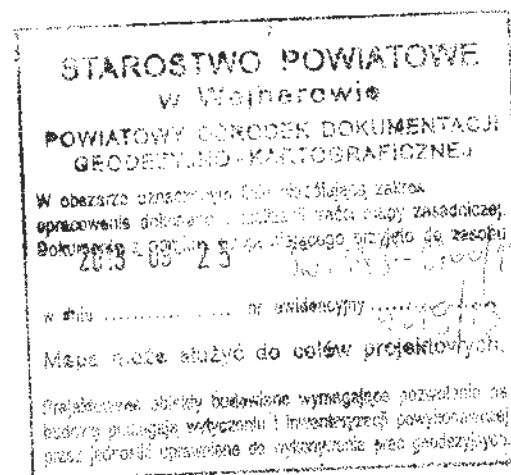 STAROSTWO POWIATOWE
w Wejherowie
POWIATOWY OŚRODEK DOKUMENTACJI
GEODEZYJNO-KARTOGRAFICZNEJ
W obszarze oznaczonym linią określającą zakres
opracowania dokonano mapy zasadniczej.
Dokumenty przyjęto do zasobu
2013 -09- 25
w dniu .............. nr ewidencyjny
Mapa może służyć do celów projektowych.
Projektowane obiekty budowlane wymagające pozwolenia na
budowę podlegają wytyczeniu i inwentaryzacji powykonawczej
przez jednostki uprawnione do wykonywania prac geodezyjnych.